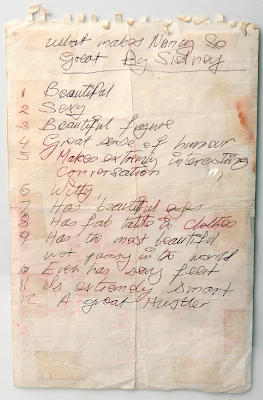 What makes Nancy So
Great By Sidney
1 Beautiful
2 Sexy
3 Beautiful figure
4 Great sense of humour
5 Makes extremly interesting
Conversation
6 Witty
7 Has beautiful eyes
8 Has fab taste in clothes
9 Has the most beautiful
wet pussy in the world
10 Even has sexy feet
11 Is extremely smart
12 A great Hustler